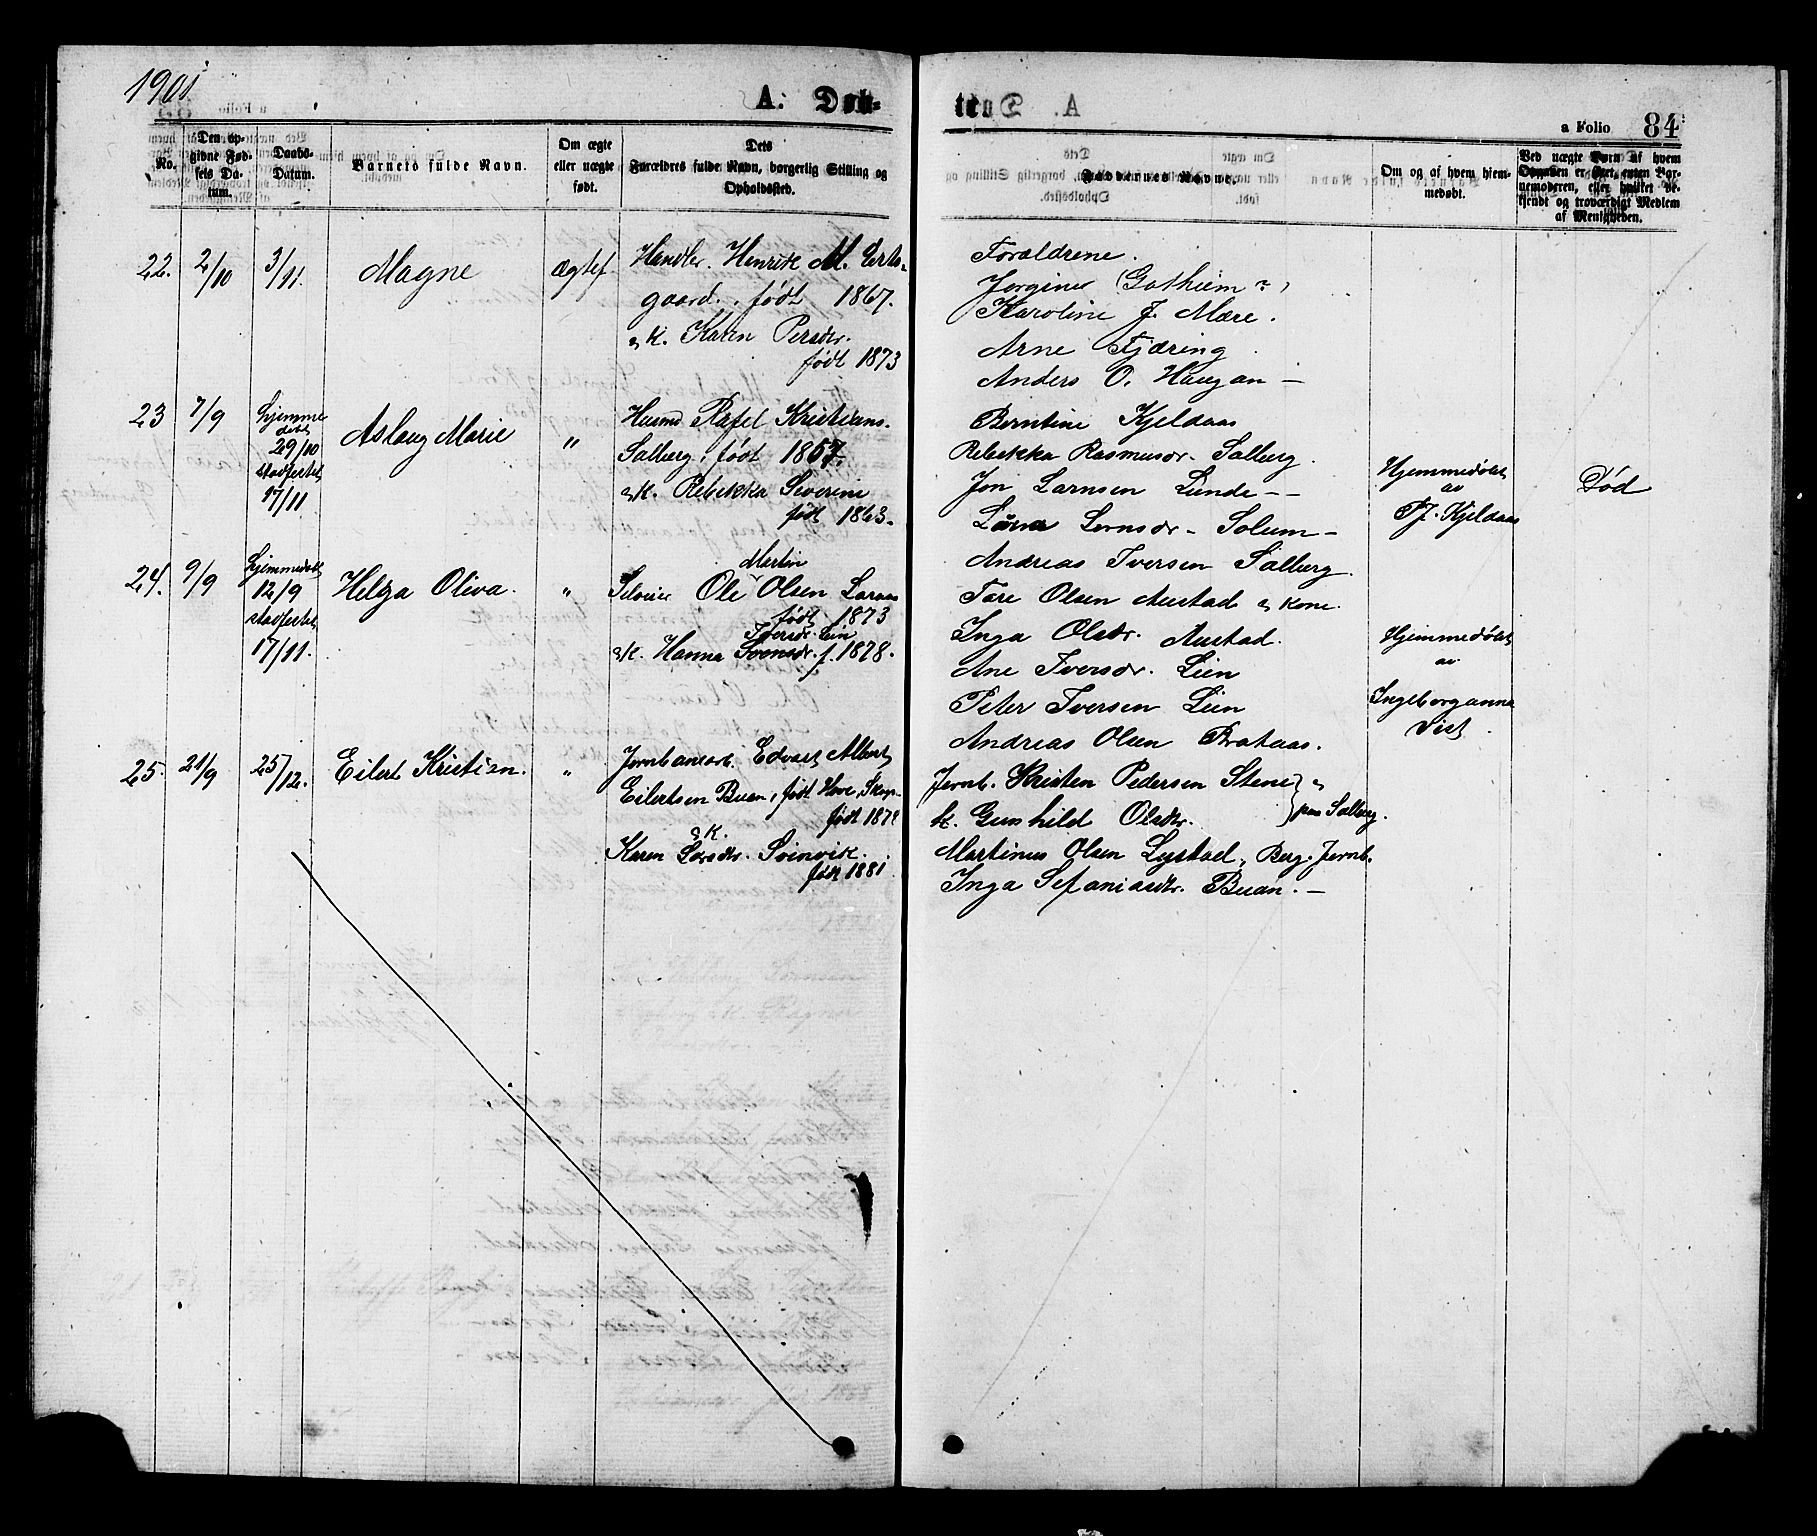 1901
A. Døb-
te.
a Folio 84
No.
Den op-
givne Fød-
sels Da-
tum.
Daabs-
Datum.
Barnets fulde Navn.
Om ægte
eller uægte
født.
Dets
Forældres fulde Navn, borgerlig Stilling og
Opholdssted.
Faddernes Navne.
Om og af hvem hjem-
medøbt.
Ved uægte Børn af hvem
Opgaven er sket, enten Bar-
nemoderen, eller hvilket be-
kjendt og troværdigt Medlem
af Menigheden.
22. 2/10 3/11. Magne ægtef.
Handler. Henrik M. Erts-
gaard. født 1867.
& K. Karen Persdtr.
født 1873
Forældrene.
Jorgine
Karoline J. Mære.
Arne Fjæring
Anders O. Haugan —
23 7/9
Hjemme
døbt
29/10
stadfæstet
17/11
Aslaug Marie "
Husmd Rafel Kristians.
Salberg, født 1857.
& K. Rebekka Severine
født 1863.
Berntine Kjeldaas
Rebekka Rasmusdr. Salberg.
Jon Larnsen Lunde - -
Solum -
Andreas Iversen Salberg.
Hjemmedøbt
av
P.J. Kjeldaas
Død
24. 9/9
Hjemmedøbt
12/9
stadfæstet
17/11.
Helga Oliva. "
Martin
Ole Olsen
født 1873
Iversdr. Lein
& K. Hanna Svensdr. f. 1878.
Tore Olsen Austad & kone.
Inga Olsdr. Austad.
Ane Iversdr. Lein
Peter Iversen Lein
Andreas Olsen Brataas.
Hjemmedøbt
av
Ingeborganna
Vist.
25. 21/9 25/12. Eilert Kristian. "
Jernbanearb. Edvart Albert
Eilertsen Buan, født Hove, Skogn
født 1878
& K.
Karen Larsdtr. Svinvik.
født 1881
Jernb. Kristen Pedersen Stene &
k. Gunhild Olsdtr. } paa Salberg.
Martinus Olsen Lystad, Berg. Jernb.
Inga Sefaniasdtr. Buan. —